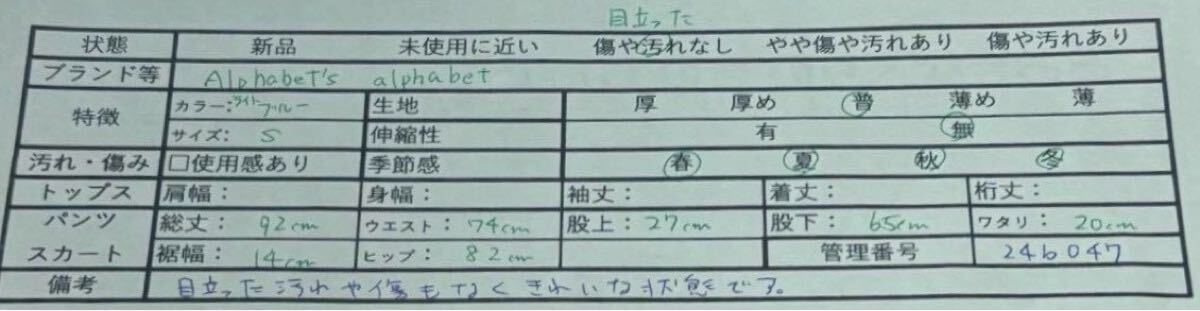 目立った
状態 新品 未使用に近い 傷や汚れなし やや傷や汚れあり 傷や汚れあり
ブランド等 Alphabet's alphabet
特徴 カラー:ライトブルー 生地 厚 厚め 普 薄め 薄
サイズ: S 伸縮性 有 無
汚れ・傷み □使用感あり 季節感 春 夏 秋 冬
トップス 肩幅: 身幅: 袖丈: 着丈: 裄丈:
パンツ 総丈: 92cm ウエスト: 74cm 股上: 27cm 股下: 65cm ワタリ: 20cm
スカート 裾幅: 14cm ヒップ: 82cm 管理番号 246047
備考 目立った汚れや傷もなくきれいな状態です。